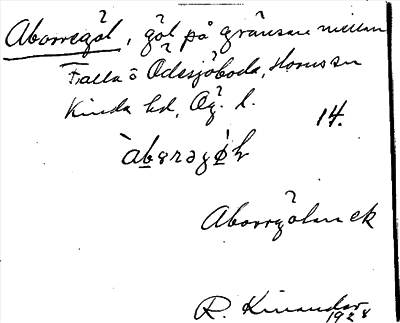 Aborregöl, göl på gränsen mellan
Falla o Ödesjöboda, Horns sn
Kinda hd, Ög. l.
14.
Aborrgölen ek
R. Kinander
1928